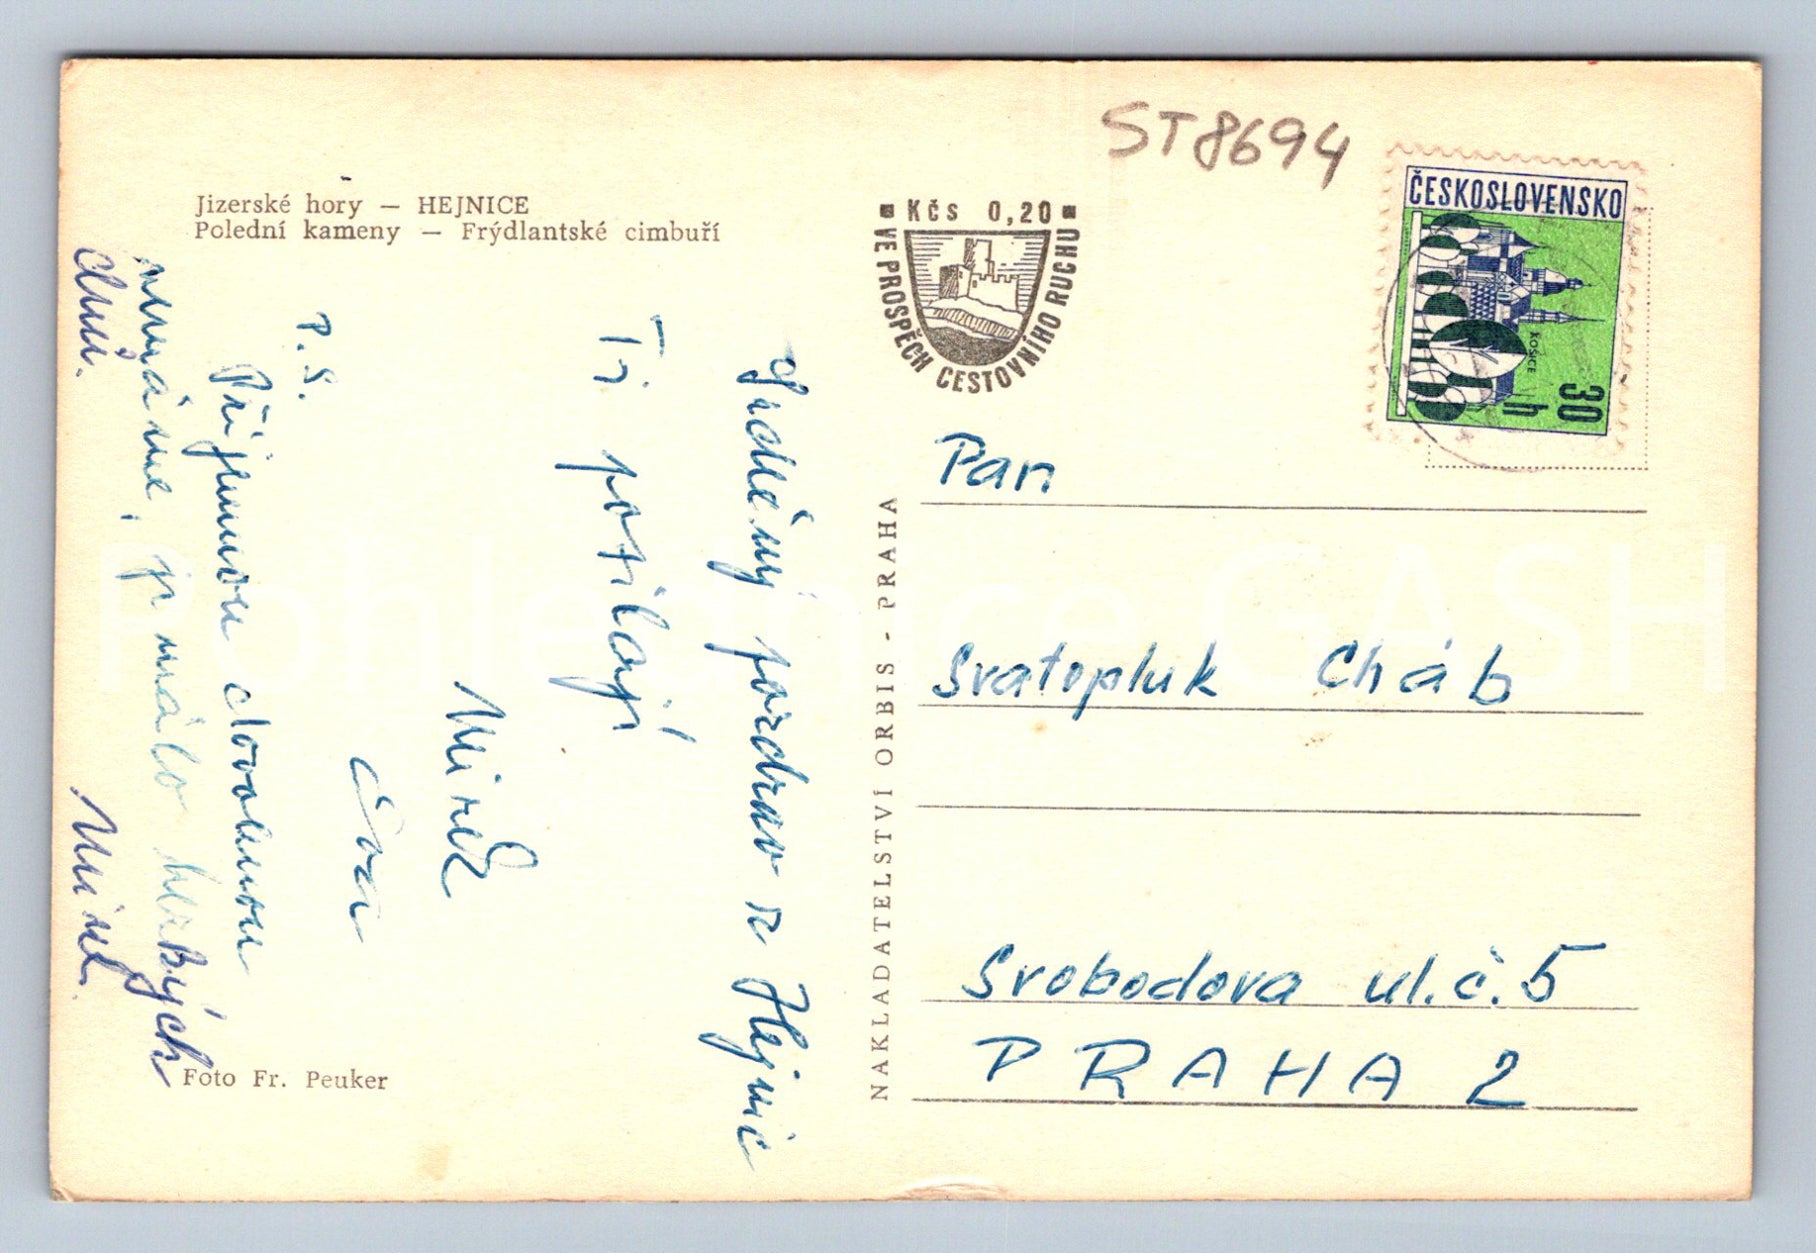 Jizerské hory — HEJNICE
Polední kameny — Frýdlantské cimbuří
Srdečný pozdrav z Hejnic
Ti posílají
Mirek
P.S.
Příjemnou dovolenou
nemáme, je málo hezkých
Mirek
Foto Fr. Peuker
NAKLADATELSTVÍ ORBIS - PRAHA
Kčs 0,20
VE PROSPĚCH CESTOVNÍHO RUCHU
ST8694
ČESKOSLOVENSKO
KOŠICE
30
h
Pan
Svatopluk Cháb
Svobodova ul. č. 5
PRAHA 2
Pohlednice GASH